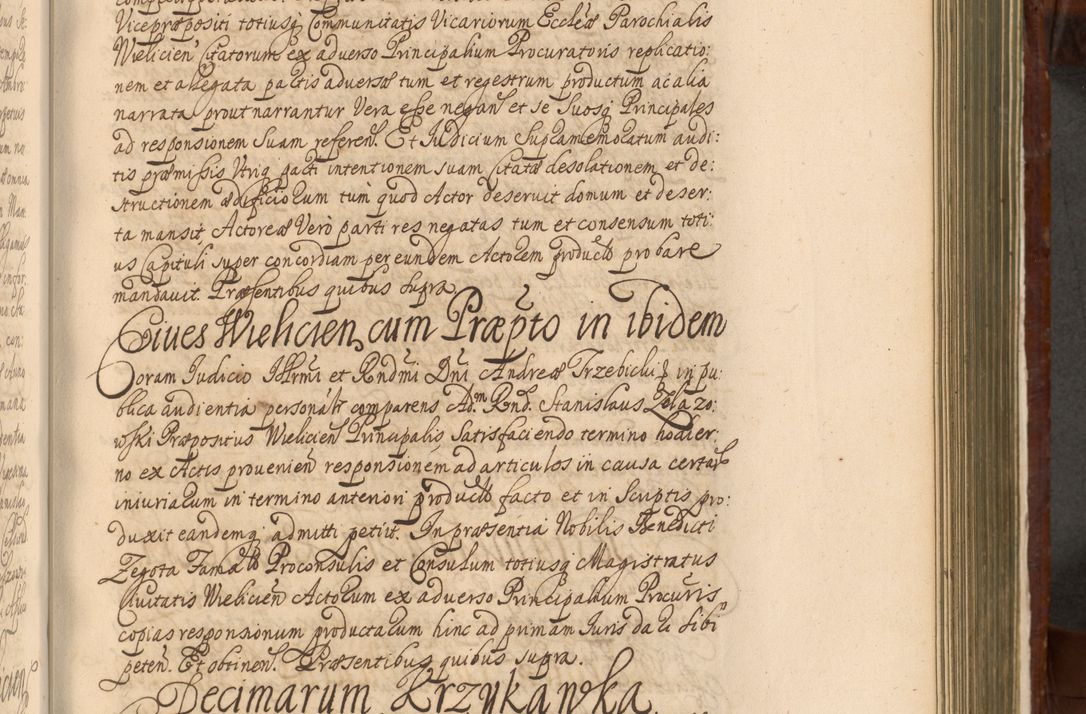 Vicepræpositi totiusq Communitatis Vicariorum Eccleæ Parochialis
Wielicien citatorum ex adverso Principalium Procuratoris replicatio:
nem et allegata partis adversæ tum et regestrum productum ac alia
narrata prout narrantur Vera esse negans et se Suosq Principales
ad responsionem suam referens. Et Judicium Supramemoratum audi:
tis præmissis Utriq parti intentionem suam citatæ desolationem et de:
structionem ædificiorum tum quod Actor deseruit domum et deser:
ta mansit Actoreæ Vero parti res negatas tum et consensum toti:
us Capituli super concordiam per eundem Actorem product probare
mandavit. Præsentibus quibus supra
Cives Wielicien, cum Præpto in ibidem
Coram Judicio Illrmi et Rndmi Dni Andreæ Trzebicki in pu:
blica audientia personalr comparens Adm Rnd. Stanislaus Zołazo:
wski Præpositus Wielicien Principalis Satisfaciendo termino hodier:
no ex Actis provenien responsionem ad articulos in causa certar
iniuriarum in termino anteriori product facto et in Scriptis pro:
duxit eandemq admitti petiit. In præsentia Nobilis Benedicti
Zegota Famati Proconsulis et Consulum totiusq Magistratus
Civitatis Wielicien Actorum ex adverso Principalium Procuris
copias responsionum productarum hinc ad primam Juris dari sibi
peten. Et obtinen. Præsentibus quibus supra.
Decimarum Krzykawka